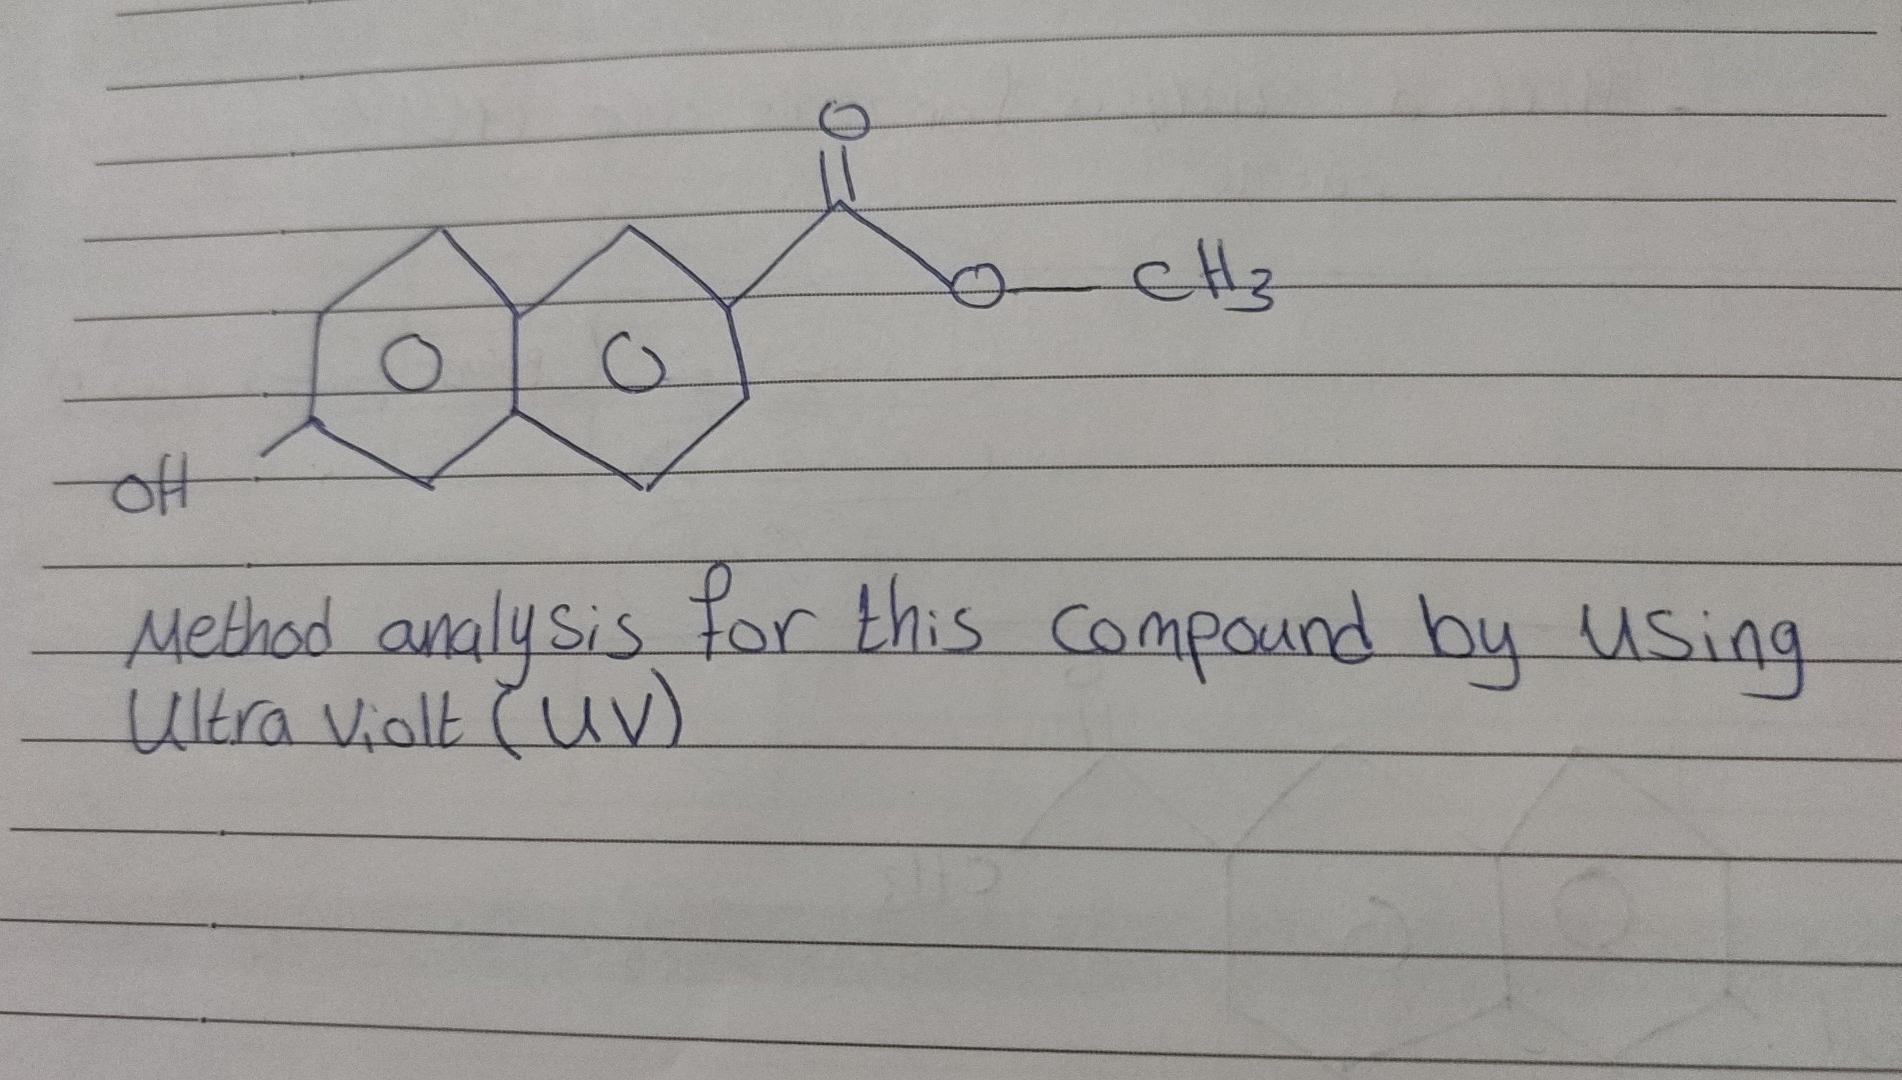 O
O
CH3
OH
Method analysis for this compound by using
Ultra Violt (UV)